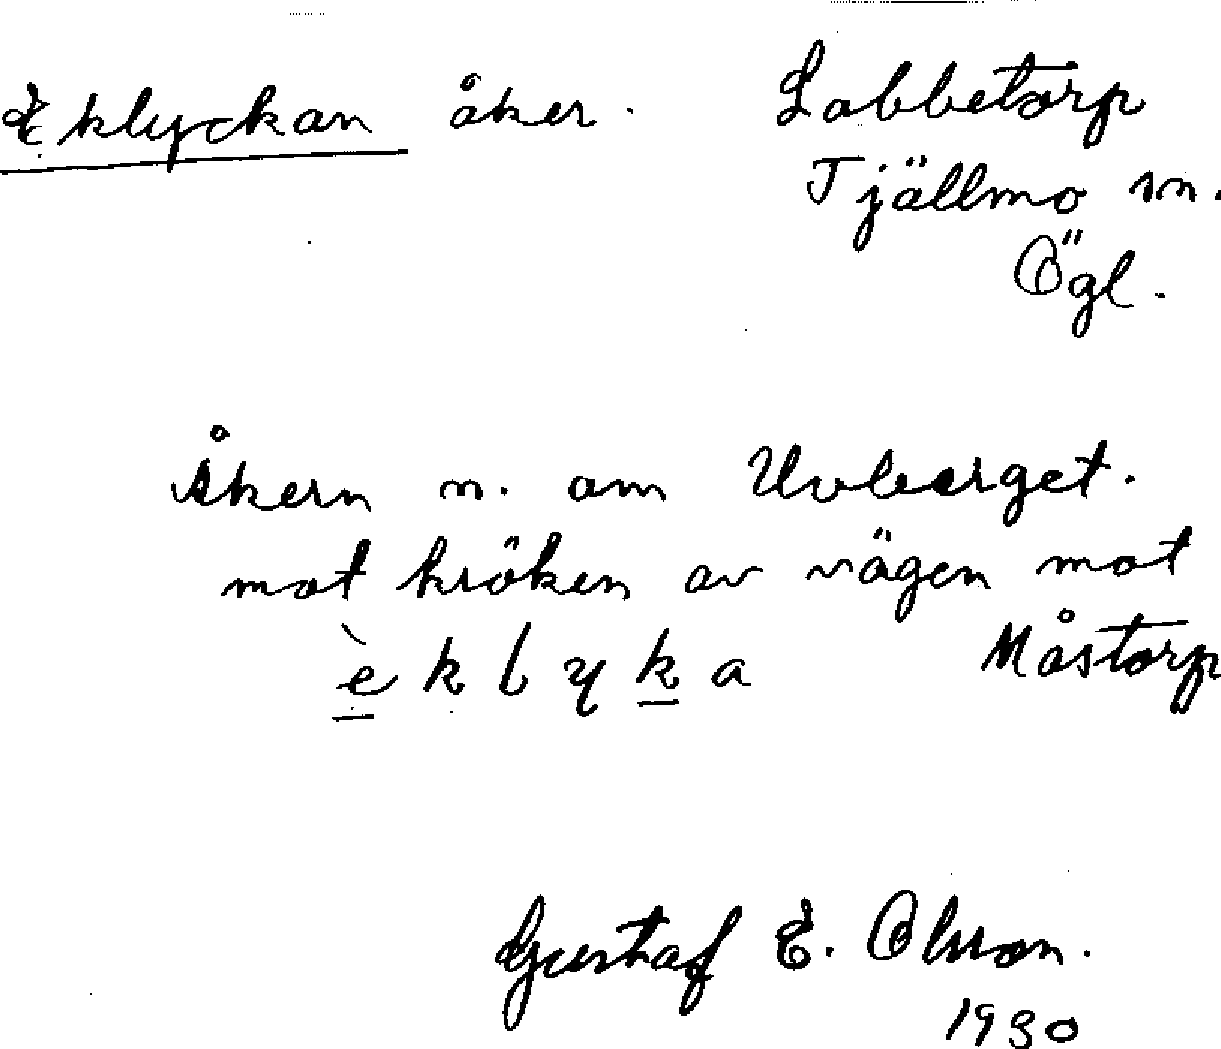 Eklyckan åker. Labbetorp
Tjällmo sn.
Ögl.
Åkern n. om Uvberget.
mot kröken av vägen mot
Måstorp
è k l y k a
Gustaf E. Olsson.
1930